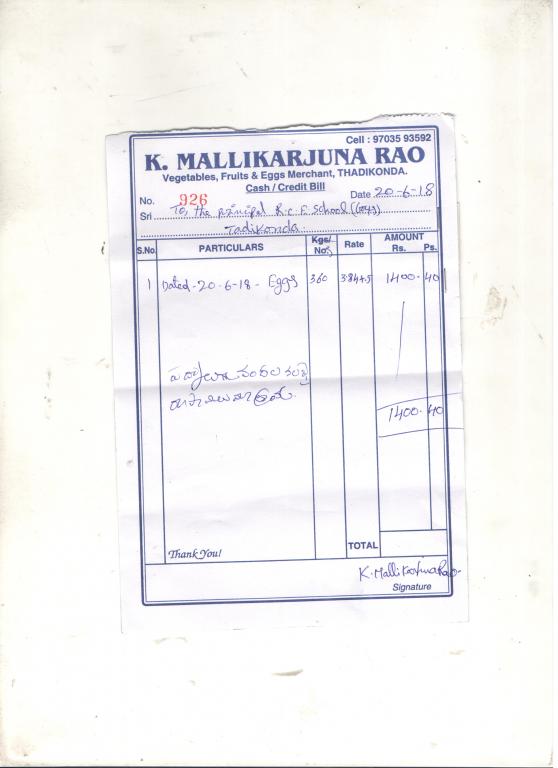 Cell : 97035 93592
K. MALLIKARJUNA RAO
Vegetables, Fruits & Eggs Merchant, THADIKONDA.
Cash / Credit Bill
No. 926 Date 20-6-18
Sri To, the principal R.C.E. School (Boys)
Tadikonda
S.No. PARTICULARS Kgs/ Nos. Rate AMOUNT Rs. Ps.
1 Dated-20-6-18- Eggs 360 1400-40
1400-40
Thank You! TOTAL
K. Mallikarjuna Rao
Signature